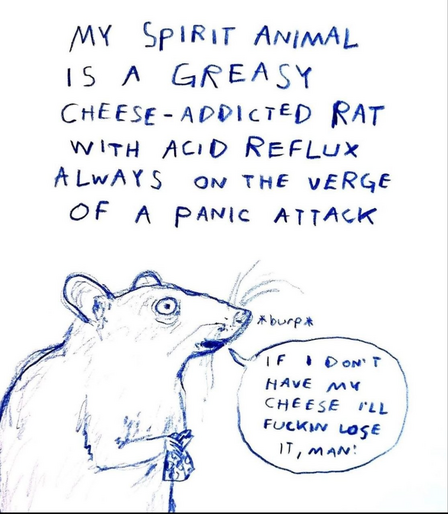 MY SPIRIT ANIMAL
IS A GREASY
CHEESE-ADDICTED RAT
WITH ACID REFLUX
ALWAYS ON THE VERGE
OF A PANIC ATTACK
*burp*
IF I DON'T
HAVE MY
CHEESE I'LL
FUCKIN LOSE
IT, MAN!